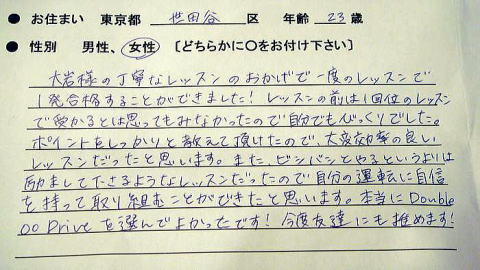 ● お住まい 東京都 世田谷 区 年齢 23 歳
● 性別 男性、女性 〔どちらかに○をお付け下さい〕
大岩様の丁寧なレッスンのおかげで一度のレッスンで
1発合格することができました! レッスンの前は1回位のレッスン
で受かるとは思ってもみなかったので自分でもびっくりでした。
ポイントをしっかりと教えて頂けたので、大変効率の良い
レッスンだったと思います。また、ビシバシとやるというよりは
励まして下さるようなレッスンだったので自分の運転に自信
を持って取り組むことができたと思います。本当にDouble
OO Driveを選んでよかったです! 今度友達にも推めます!